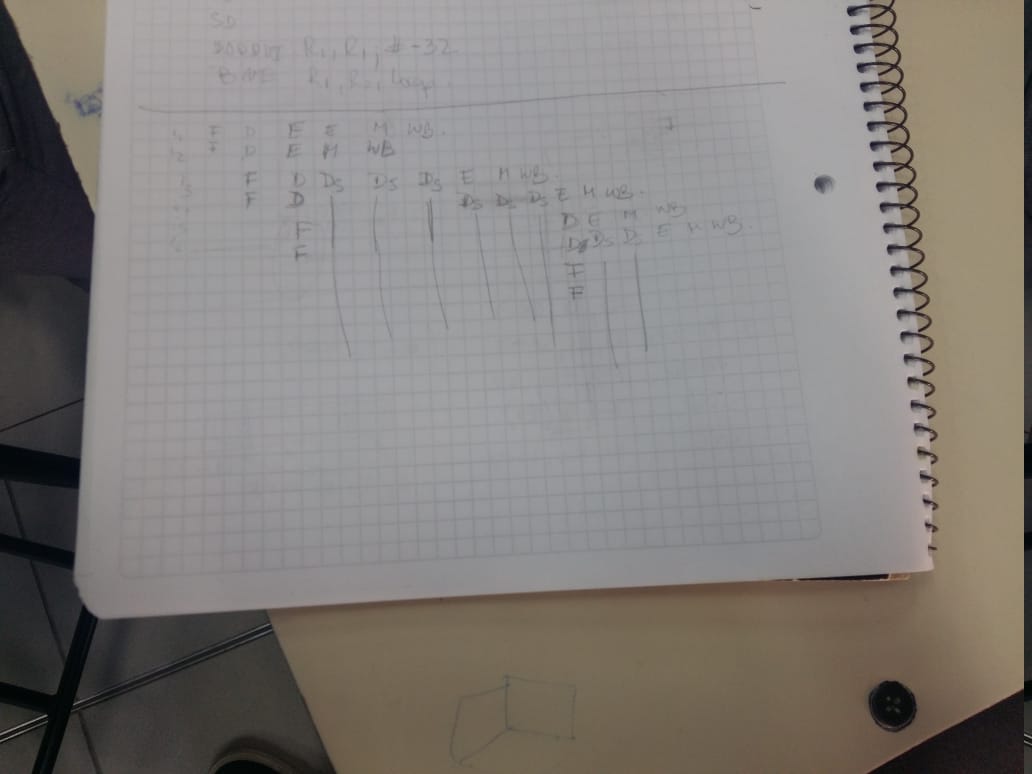 SD
DADDUI R1, R1, #-32
BNE R1, R2, Loop
I1 F D E E M WB.
I2 F D E M WB
I3 F D Ds Ds Ds E M WB.
F D Ds Ds Ds E M WB.
F D E M WB
F Ds Ds Ds E M WB.
F
F